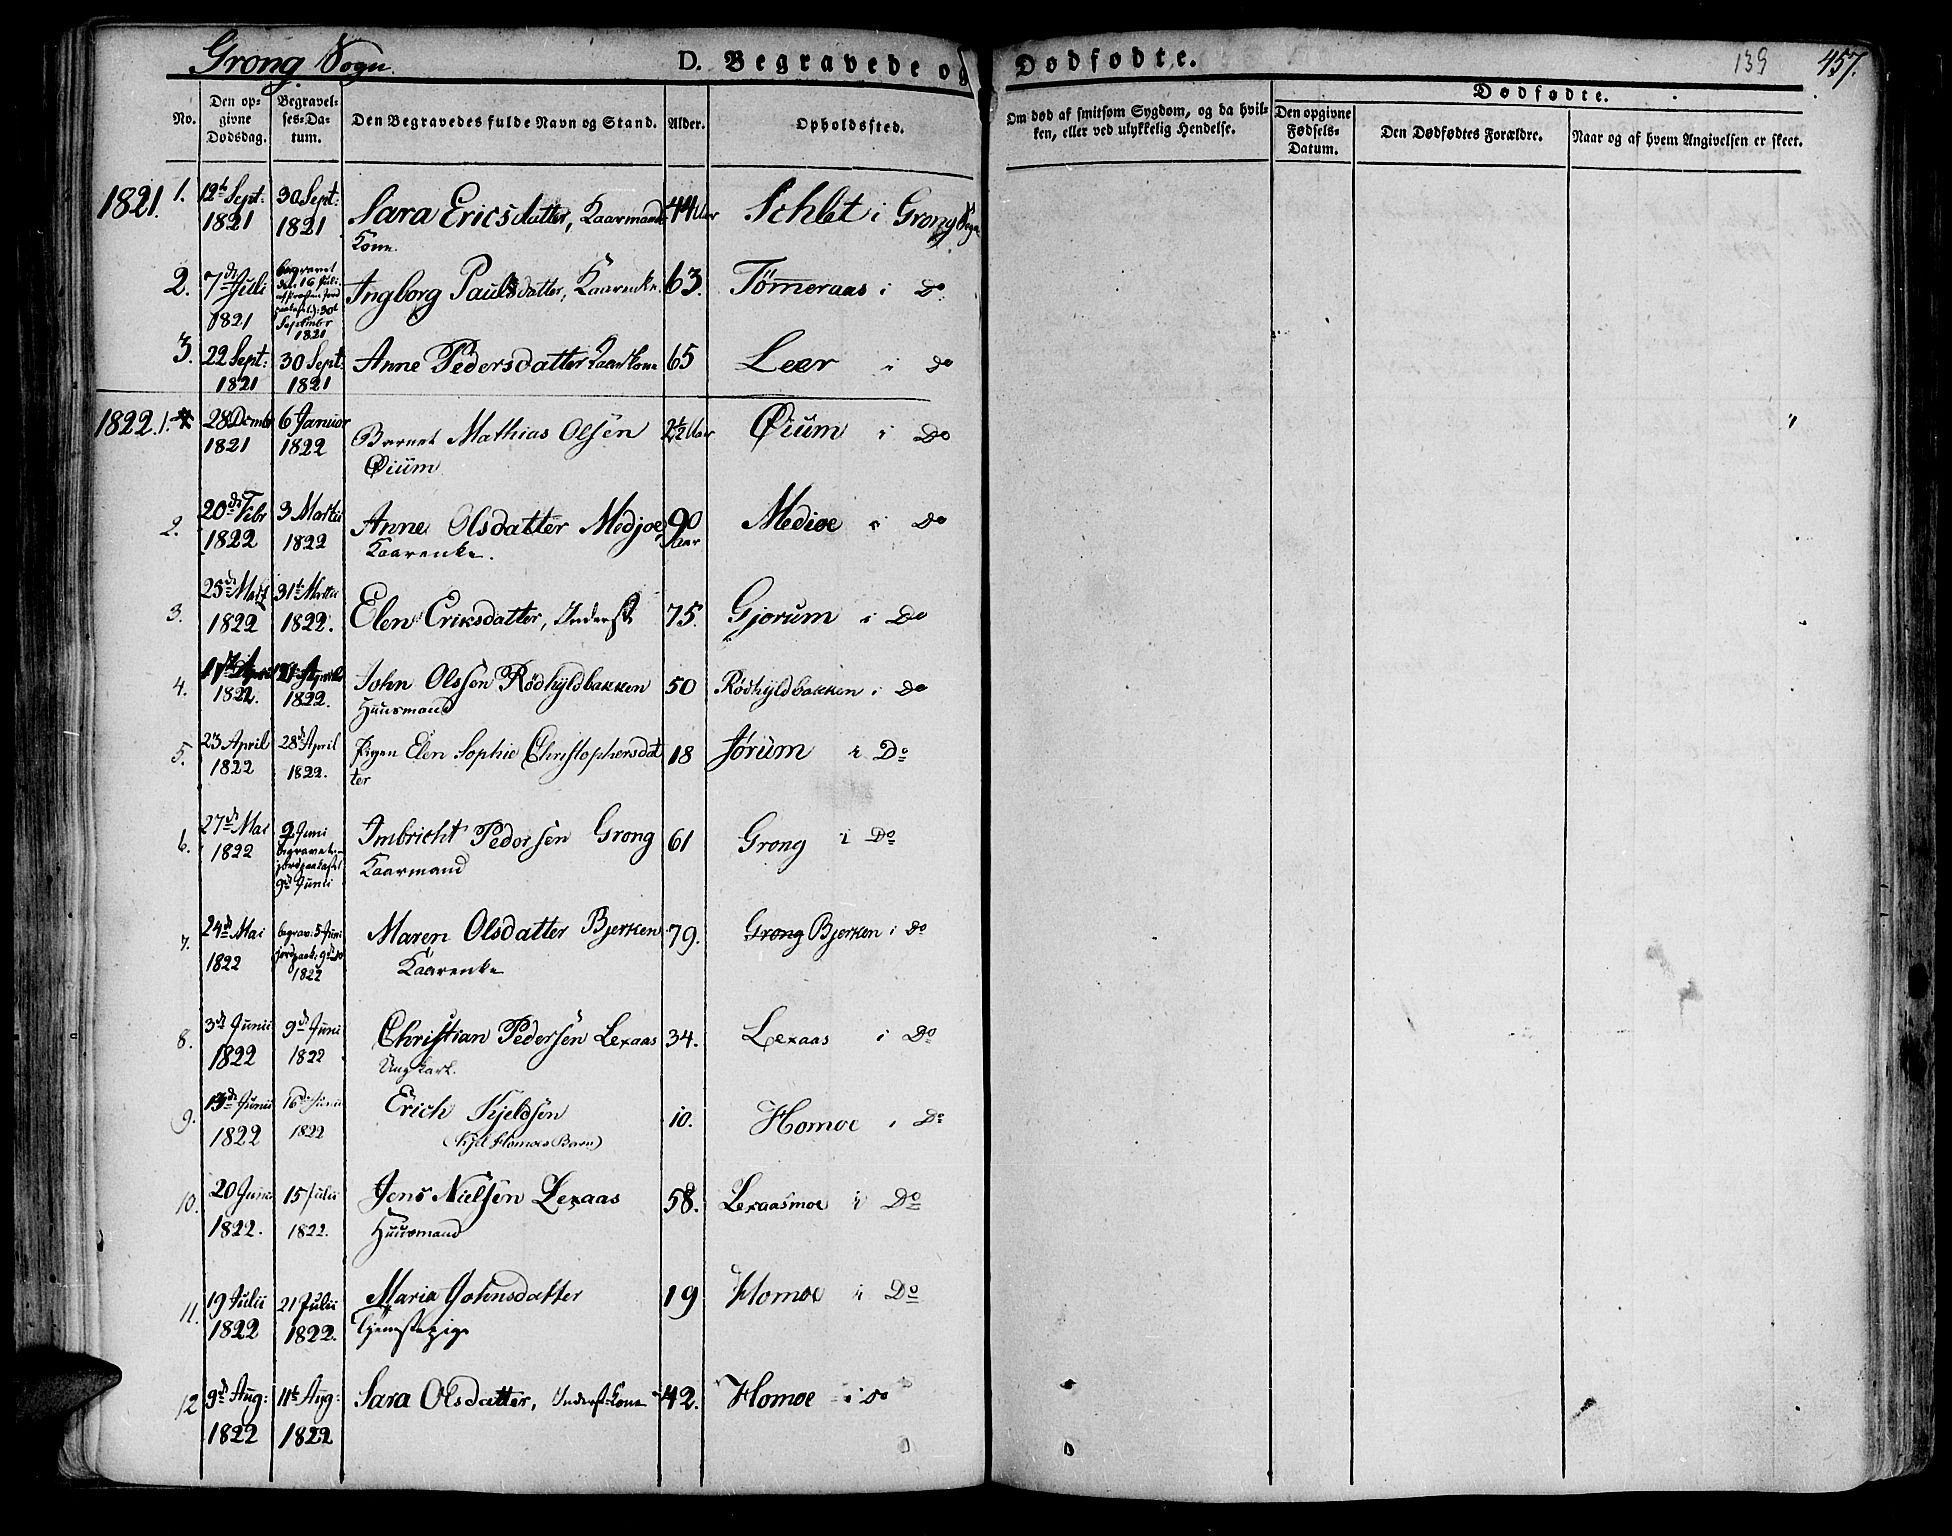 Grong Sogn.
D. Begravede og Dødfødte.
139
457.
No.
Den opgivne Dødsdag.
Begravelses-Datum.
Den Begravedes fulde Navn og Stand.
Alder.
Opholdssted.
Om død af smitsom Sygdom, og da hvilken, eller ved ulykkelig Hendelse.
Dødfødte.
Den opgivne Fødsels-Datum.
Den Dødfødtes Forældre.
Naar og af hvem Angivelsen er skeet.
1821. 1. 12te Sept. 1821 30 Sept: 1821 Sara Ericsdatter, Kaarmands Kone 44 Aar Schlet i Grong Sogn
2. 7de Juli 1821 begravet den 16 Juli 30te September 1821 Ingborg Paulsdatter, Kaarenke. 63. Tømeraas i Do
3. 22 Sept: 1821 30 Sept: 1821 Anne Pedersdatter Kaarkone 65 Leer i do
1822. 1. 28 Dcmbr 1821 6 Januar 1822 Barnet Mathias Olsen Øium 2½ Aar Øium i Do
2. 20de Febr 1822 3 Martii 1822 Anne Olsdatter Medjøe Kaarenke. 90 Aar Mediøe i Do
3. 25de Mart 1822 31te Martii 1822. Elen Eriksdatter, Inderst 75. Gjorum i Do
4. April 1822. 21 April 1822. John Olssen Rødhyldbakken Huusmand 50 Rødhyldbakken i Do
5. 23 April 1822 28de April 1822. Pigen Elen Sophie Christophersdatter 18 Jørum i Do
6. 27de Mai 1822 2 Juni begravet jordpaakastet 9de Junii Imbricht Pedersen Grong Kaarmand 61 Grong i Do
7. 24de Mai 1822 begrav: 5 Juni jordpaak: 9de do 1822 Maren Olsdatter Bjerken Kaarenke 79. Grong Bjerken i do
8. 3de Junii 1822 9de Juni 1822 Christian Pedersen Lexaas Ungkarl. 34. Lexaas i Do
9. 13de Junii 1822 16de Junii 1822 Erich Kjeldsen (Kjel Homoes Barn) 10. Homoe i Do
10. 20 Juni 1822. 15 Julii 1822. Jens Nielsen Lexaas Huusmand 58. Lexaasmoe i Do
11. 19 Julii 1822 21 Julii 1822. Maria Johnsdatter Tjenestepige 19 Homoe i Do
12 9de Aug: 1822 11te Aug: 1822 Sara Olsdatter, Inderst-Kone 42. Homoe i do